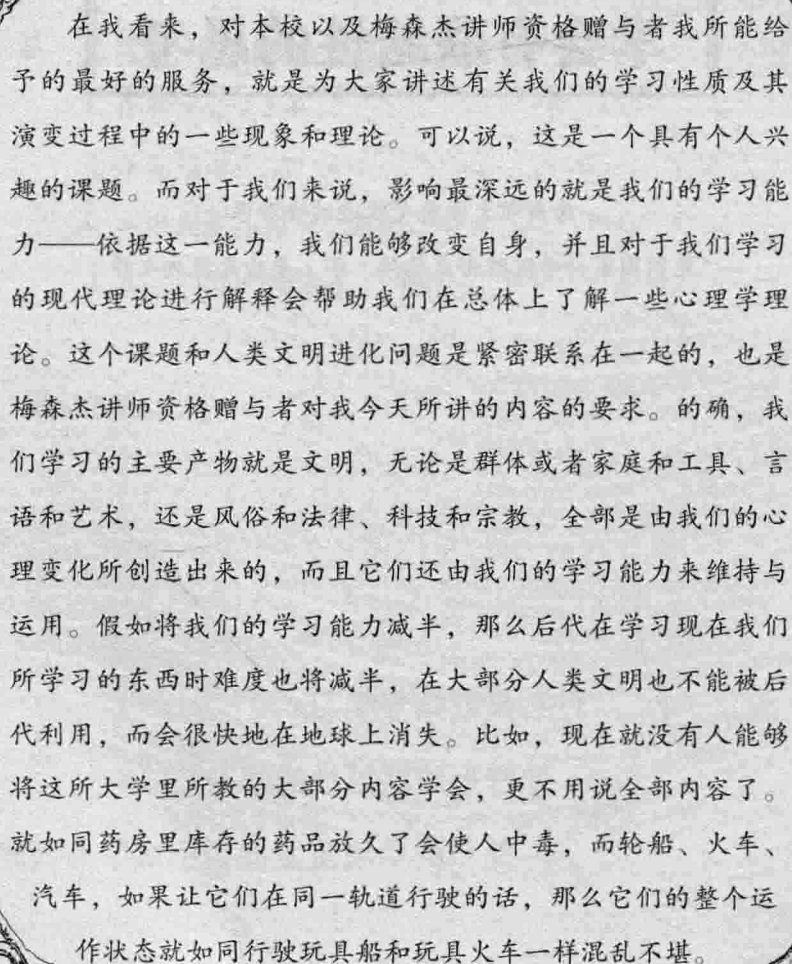 在我看来，对本校以及梅森杰讲师资格赠与者我所能给
予的最好的服务，就是为大家讲述有关我们的学习性质及其
演变过程中的一些现象和理论。可以说，这是一个具有个人兴
趣的课题。而对于我们来说，影响最深远的就是我们的学习能
力——依据这一能力，我们能够改变自身，并且对于我们学习
的现代理论进行解释会帮助我们在总体上了解一些心理学理
论。这个课题和人类文明进化问题是紧密联系在一起的，也是
梅森杰讲师资格赠与者对我今天所讲的内容的要求。的确，我
们学习的主要产物就是文明，无论是群体或者家庭和工具、言
语和艺术，还是风俗和法律、科技和宗教，全部是由我们的心
理变化所创造出来的，而且它们还由我们的学习能力来维持与
运用。假如将我们的学习能力减半，那么后代在学习现在我们
所学习的东西时难度也将减半，在大部分人类文明也不能被后
代利用，而会很快地在地球上消失。比如，现在就没有人能够
将这所大学里所教的大部分内容学会，更不用说全部内容了。
就如同药房里库存的药品放久了会使人中毒，而轮船、火车、
汽车，如果让它们在同一轨道行驶的话，那么它们的整个运
作状态就如同行驶玩具船和玩具火车一样混乱不堪。